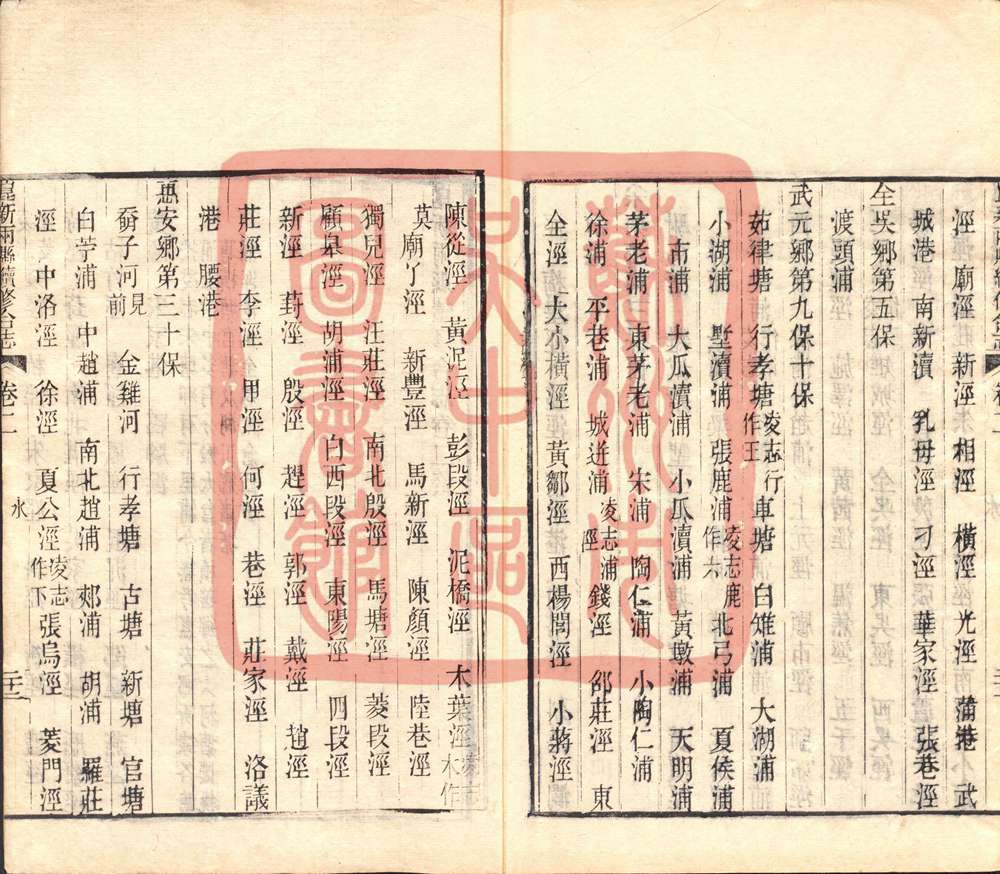 涇　廟涇　新涇　相涇　橫涇　光涇　蒲港　武
城港　南新瀆　孔母涇　刁涇　華家涇　張巷涇
全吳鄉第五保
渡頭浦
武元鄉第九保十保
茹律塘　行孝塘凌志行作王　車塘　白雉浦　大湖浦
小湖浦　墅瀆浦　張鹿浦凌志鹿作六　北弓浦　夏侯浦
市浦　大瓜瀆浦　小瓜瀆浦　黃墩浦　天明浦
茅老浦　東茅老浦　宋浦　陶仁浦　小陶仁浦
徐浦　平巷浦　城迸浦凌志浦涇　錢涇　邵莊涇　東
全涇　大小橫涇　黃鄒涇　西楊閏涇　小蔣涇
陳從涇　黃泥涇　彭段涇　泥橋涇　木葉涇凌志木作
莫廟了涇　新豐涇　馬新涇　陳顏涇　陸巷涇
獨兒涇　汪莊涇　南北殷涇　馬塘涇　菱段涇
顧皋涇　胡浦涇　白西段涇　東陽涇　四段涇
新涇　葑涇　殷涇　趕涇　郭涇　戴涇　趙涇
莊涇　李涇　甲涇　何涇　巷涇　莊家涇　洛議
港　腰港
惠安鄉第三十保
奣子河見前　金雞河　行孝塘　古塘　新塘　官塘
白苧浦　中趙浦　南北趙浦　郟浦　胡浦　羅莊
涇　中洛涇　徐涇　夏公涇凌志作下　張烏涇　菱門涇
崑新兩縣續修合志　卷二　水　二十二